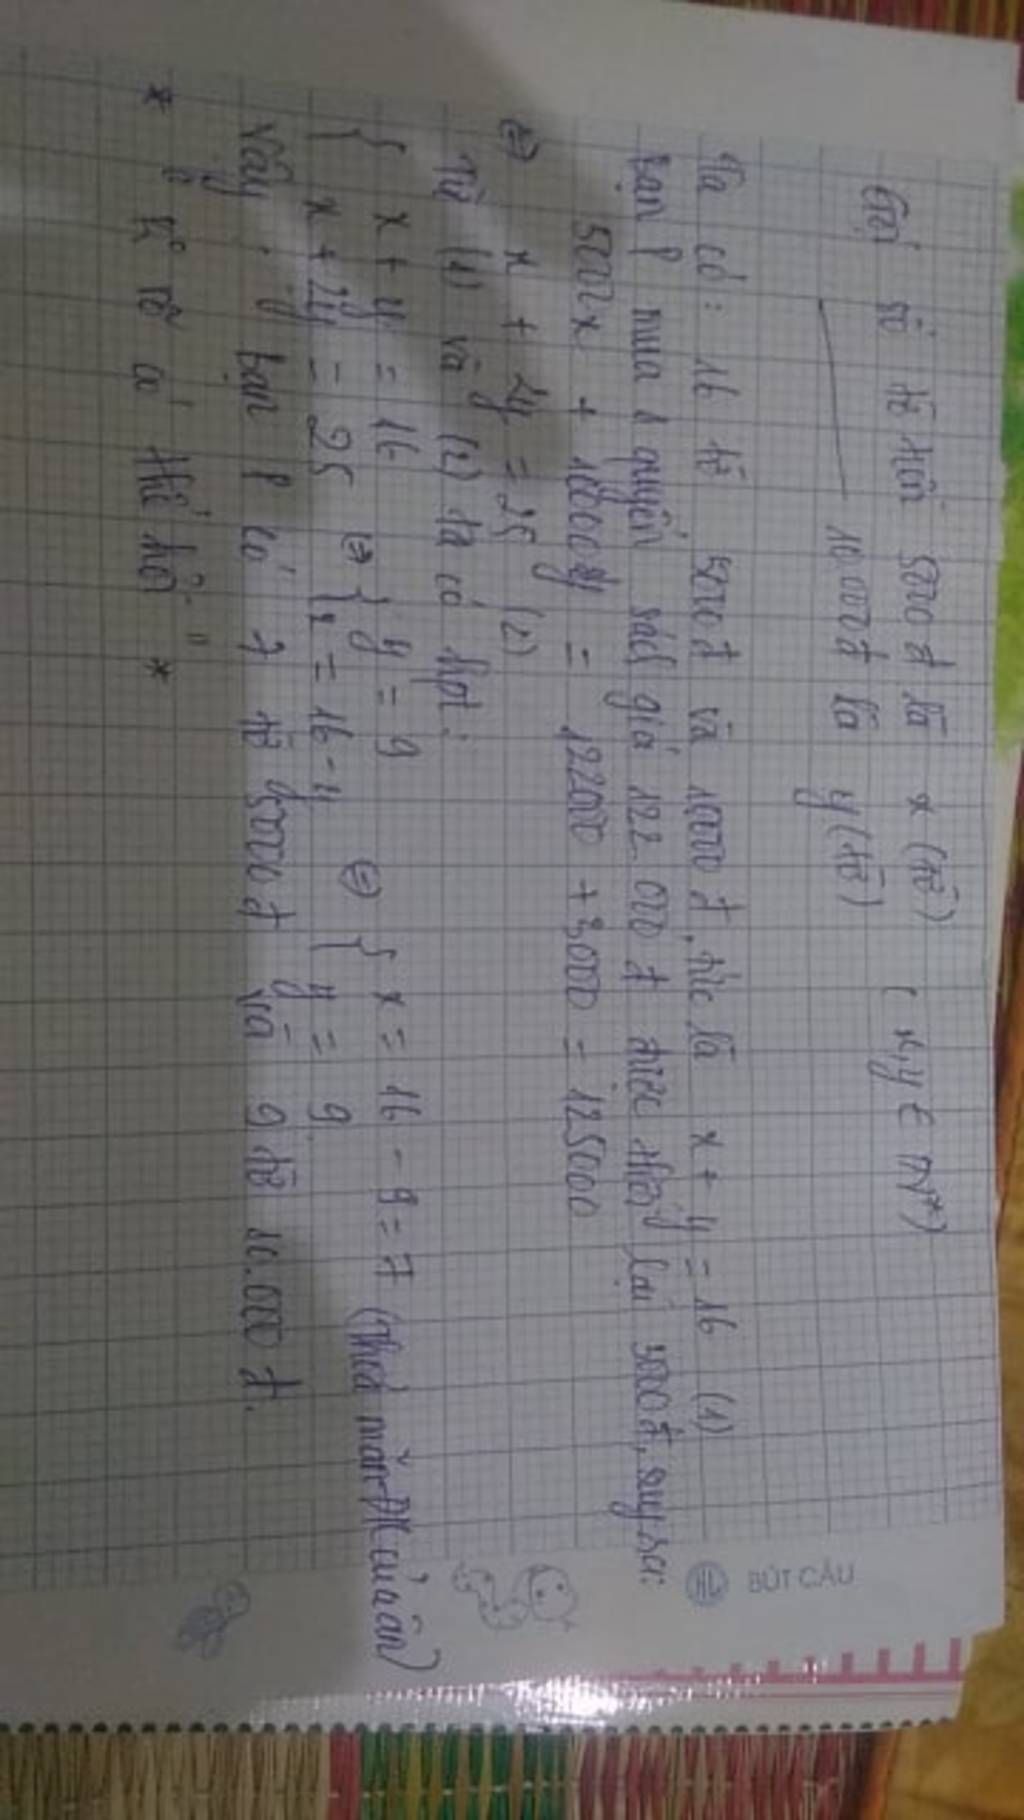 Gọi số tờ tiền 5000 đ là x (tờ) ( x,y ∈ N*)
10.000 đ là y (tờ)
Ta có: 16 tờ 5000 đ và 10000 đ, tức là x + y = 16 (1)
Bạn P mua 1 quyển sách giá 122.000 đ được thối lại 3000 đ, suy ra:
5000x + 10000y = 122000 + 3000 = 125000
⇔ x + 2y = 25 (2)
Từ (1) và (2) ta có hpt:
{ x + y = 16 ⇔ { y = 9 ⇔ { x = 16 - 9 = 7 (thoả mãn ĐK của ẩn)
{ x + 2y = 25 { x = 16 - y { y = 9
Vậy bạn P có 7 tờ 5000 đ và 9 tờ 10.000 đ.
BÚT CÂU